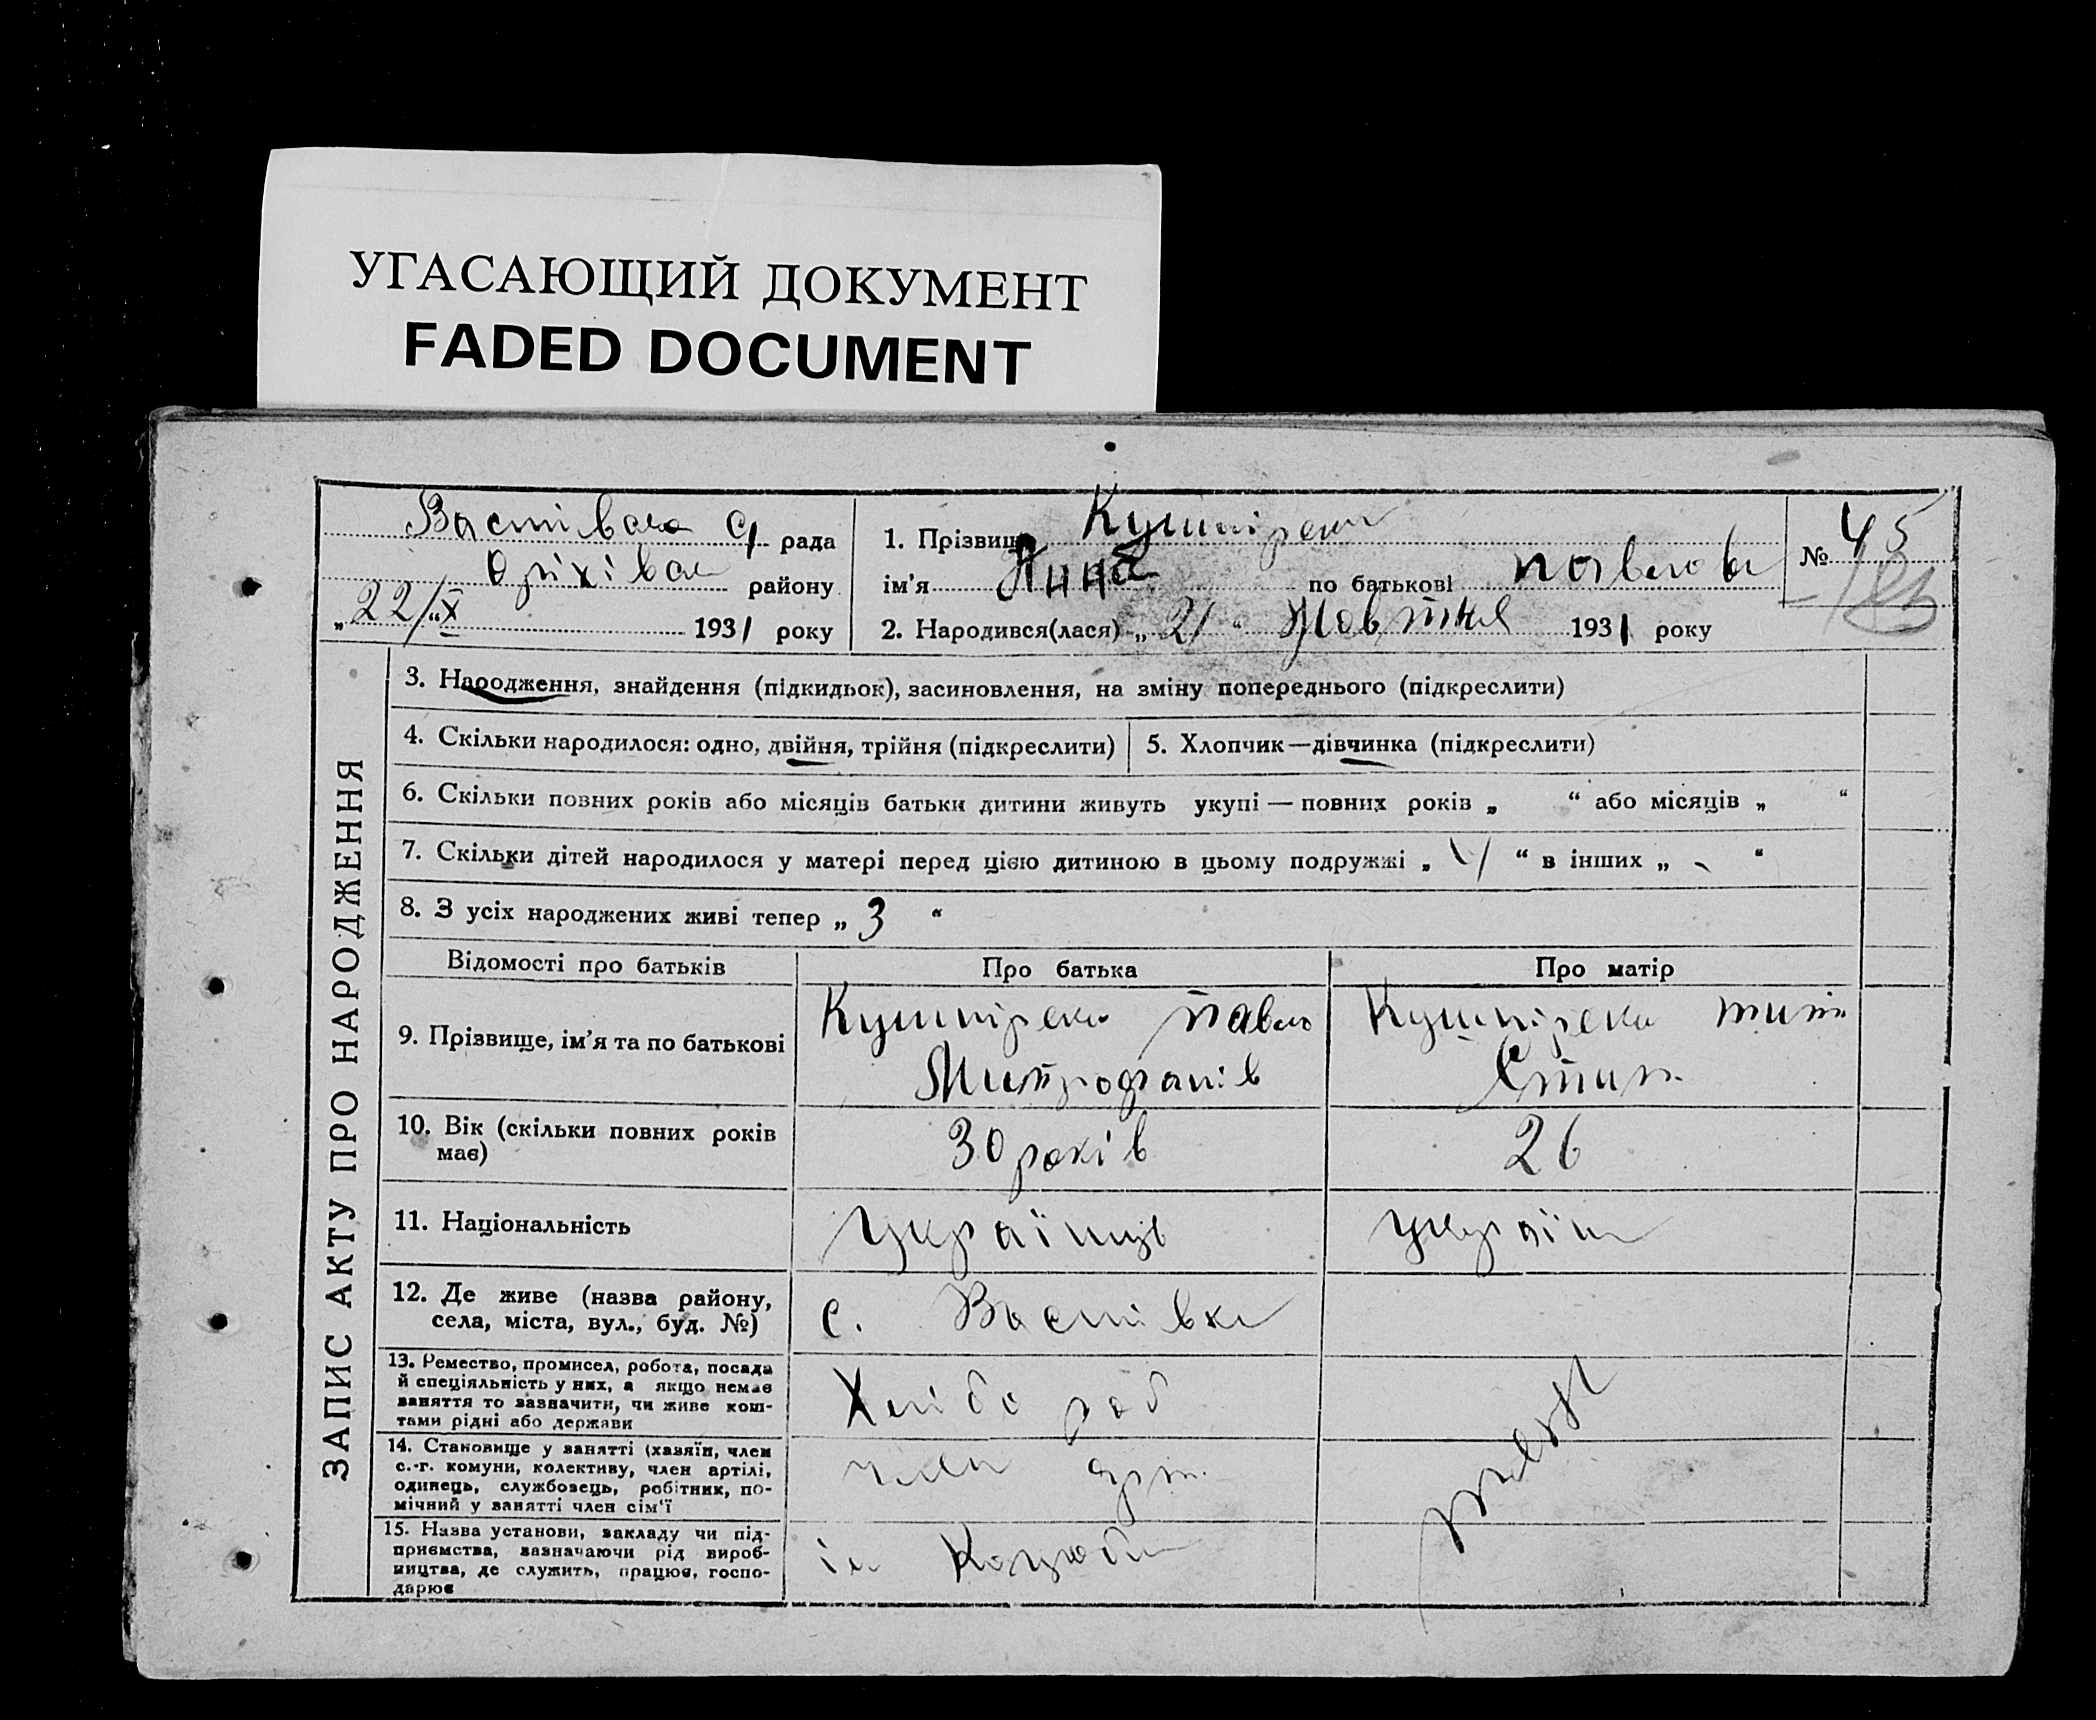 УГАСАЮЩИЙ ДОКУМЕНТ
FADED DOCUMENT
рада
району
„22/"X 1931 року
1. Прізвище
ім'я Анна по батькові Павлова
2. Народився(лася) „21" Жовтня 1931 року
№ 45
ЗАПИС АКТУ ПРО НАРОДЖЕННЯ
3. Народження, знайдення (підкидьок), засиновлення, на зміну попереднього (підкреслити)
4. Скільки народилося: одно, двійня, трійня (підкреслити)
5. Хлопчик—дівчинка (підкреслити)
6. Скільки повних років або місяців батьки дитини живуть укупі — повних років „ " або місяців „ "
7. Скільки дітей народилося у матері перед цією дитиною в цьому подружжі „ " в інших „ - "
8. З усіх народжених живі тепер „ 3 "
Відомості про батьків
Про батька
Про матір
9. Прізвище, ім'я та по батькові
Павло
Митрофанів
10. Вік (скільки повних років має)
30 років
26
11. Національність
українець
україн
12. Де живе (назва району, села, міста, вул., буд. №)
с.
13. Ремество, промисел, робота, посада
й спеціяльність у них, а якщо немає
заняття то зазначити, чи живе кош-
тами рідні або держави
Хлібороб
14. Становище у занятті (хазяїн, член
с.-г. комуни, колективу, член артілі,
одинець, службовець, робітник, по-
мічний у занятті член сім'ї
член арт.
15. Назва установи, закладу чи під-
приємства, зазначаючи рід вироб-
ництва, де служить, працює, госпо-
дарює
ім Коцюби